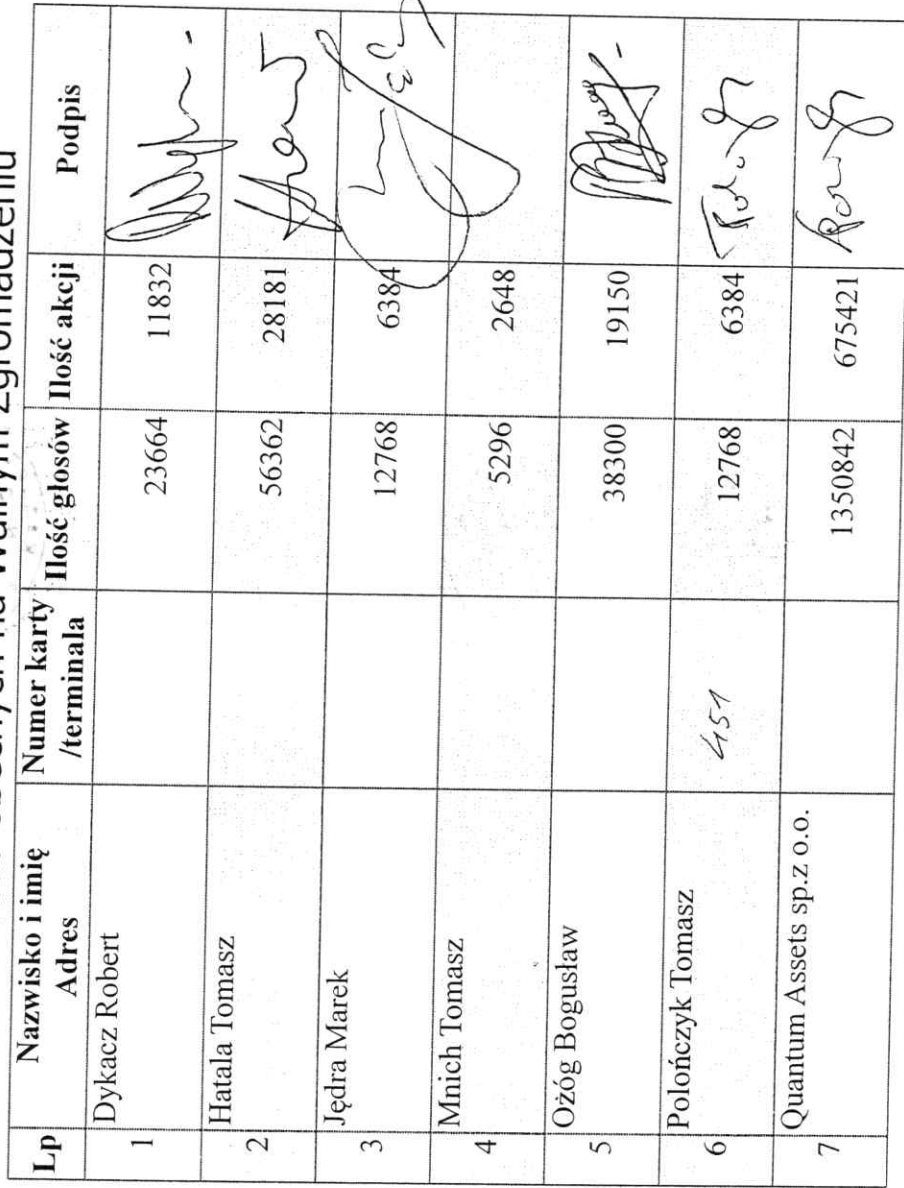 obecnych na Walnym Zgromadzeniu
Lp Nazwisko i imię Adres Numer karty /terminala Ilość głosów Ilość akcji Podpis
1 Dykacz Robert 23664 11832
2 Hatala Tomasz 56362 28181
3 Jędra Marek 12768 6384
4 Mnich Tomasz 5296 2648
5 Ożóg Bogusław 38300 19150
6 Polończyk Tomasz 451 12768 6384
7 Quantum Assets sp.z o.o. 1350842 675421